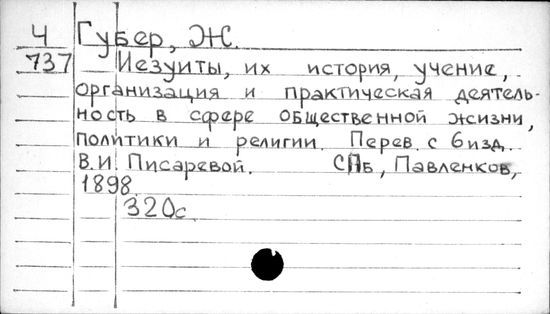 Ч Губер, Ж.
737 Иезуиты, их история, учение,
организация и практическая деятель-
ность в сфере общественной жизни,
политики и религии. Перев. с 6 изд.
В.И. Писаревой. СПб, Павленков,
1898.
320с.